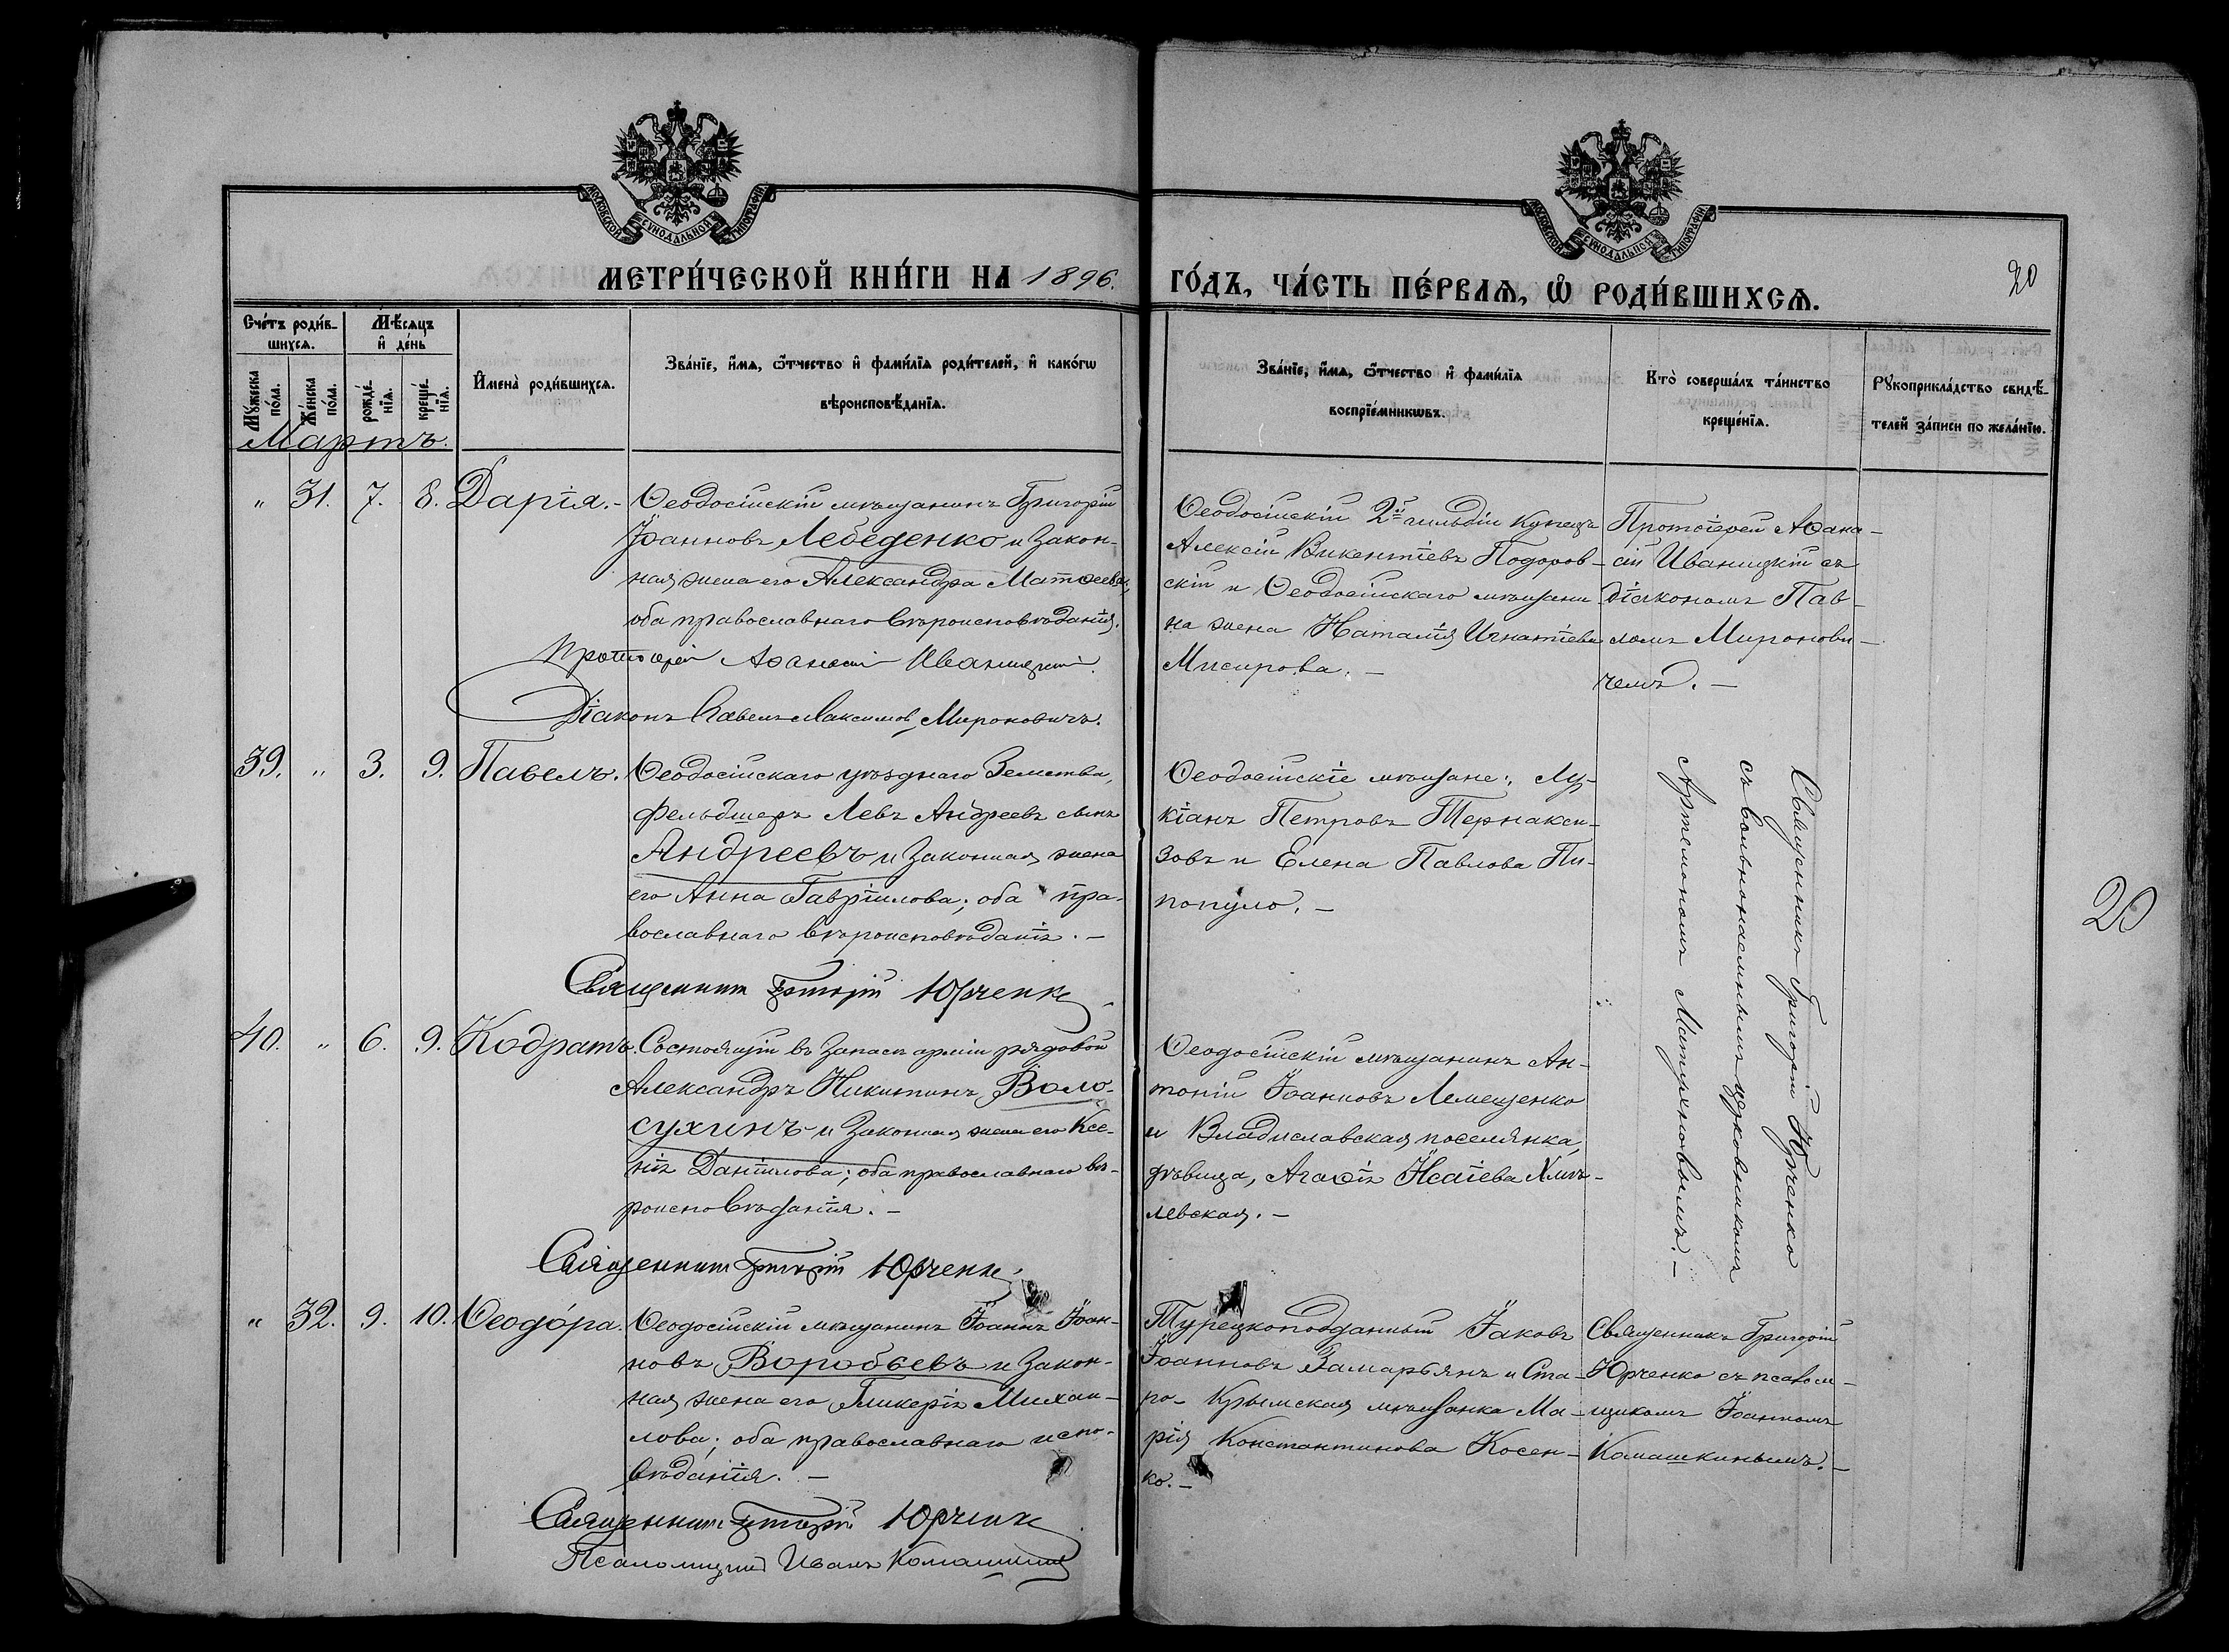 МОСКОВСКОЙ СѴНОДАЛЬНОЙ ТИПОГРАФІИ
МОСКОВСКОЙ СѴНОДАЛЬНОЙ ТИПОГРАФІИ
МЕТРИ́ЧЕСКОЙ КНИ́ГИ НА 1896.
ГО́ДЪ, ЧА́СТЬ ПЕ́РВАѦ, Ѡ҆ РОДИ́ВШИХСѦ.
20
Сче́тъ роди́в-
шихсѧ.
Мѣ́сѧцъ
и҆ де́нь
Мꙋ́жеска
по́ла.
Же́нска
по́ла.
рожде́-
нїѧ.
креще́-
нїѧ.
И҆мена̀ роди́вшихсѧ.
Зва́нїе, и҆́мѧ, ѻ҆́тчество и҆ фамѝлїѧ роди́телей, и҆ како́гѡ
вѣроисповѣ́данїѧ.
Зва́нїе, и҆́мѧ, ѻ҆́тчество и҆ фамѝлїѧ
воспрїе́мникѡвъ.
Кто̀ соверша́лъ та́инство
креще́нїѧ.
Рꙋкоприкла́дство свидѣ́-
телей за́писи по жела́нїю.
Мартъ.
" 31. 7. 8. Дарія.-
Ѳеодосійскій мѣщанинъ Григорій
Іоанновъ Лебеденко и закон-
ная жена его Александра Матѳеева,
оба православнаго вѣроисповѣданія.
Протоіерей Аѳанасій Иваницкій.
Діаконъ Павелъ Максимов. Мироновичъ.
Ѳеодосійскій 2й гильдіи купецъ
Алексій Викентіевъ Подоров-
скій и Ѳеодосійскаго мѣщани-
на жена Наталія Игнатіева
Мисирова. -
Протоіерей Аѳана-
сій Иваницкій съ
діакономъ Пав-
ломъ Миронови-
чемъ. -
39. " 3. 9. Павелъ.
Ѳеодосійскаго уѣзднаго Земства,
фельдшеръ Левъ Андреевъ сынъ
Андреевъ и законная жена
его Анна Гавріилова; оба пра-
вославнаго вѣроисповѣданія. -
Священникъ Григорій Юрченко
Ѳеодосійскіе мѣщане: Лу-
кіанъ Петровъ Тернакси-
зовъ и Елена Павлова Пи-
популо. -
Священникъ Григорій Юрченко
съ вольнонаемнымъ церковникомъ
Артемономъ Мартыновымъ. -
40. " 6. 9. Кодратъ.
Состоящій въ запасѣ арміи рядовой
Александръ Никитинъ Воло-
сухинъ и законная жена его Ксе-
нія Даніилова; оба православнаго вѣ-
роисповѣданія. -
Священникъ Григорій Юрченко
Ѳеодосійскій мѣщанинъ Ан-
тоній Іоанновъ Лемещенко
и Владиславская поселянка,
дѣвица, Агаѳія Исаіева Хмѣ-
левская. -
" 32. 9. 10. Ѳеодо́ра.
Ѳеодосійскій мѣщанинъ Іоаннъ Іоан-
новъ Воробьевъ и закон-
ная жена его Гликерія Михаи-
лова; оба православнаго испо-
вѣданія. -
Священникъ Григорій Юрченко
Псаломщикъ Иванъ Комашкинъ
Турецкоподданный Іаковъ
Іоанновъ Гамарбянъ и Ста-
ро-Крымская мѣщанка Ма-
рія Константинова Косен-
ко. -
Священникъ Григорій
Юрченко съ псалом-
щикомъ Іоанномъ
Комашкинымъ. -
20